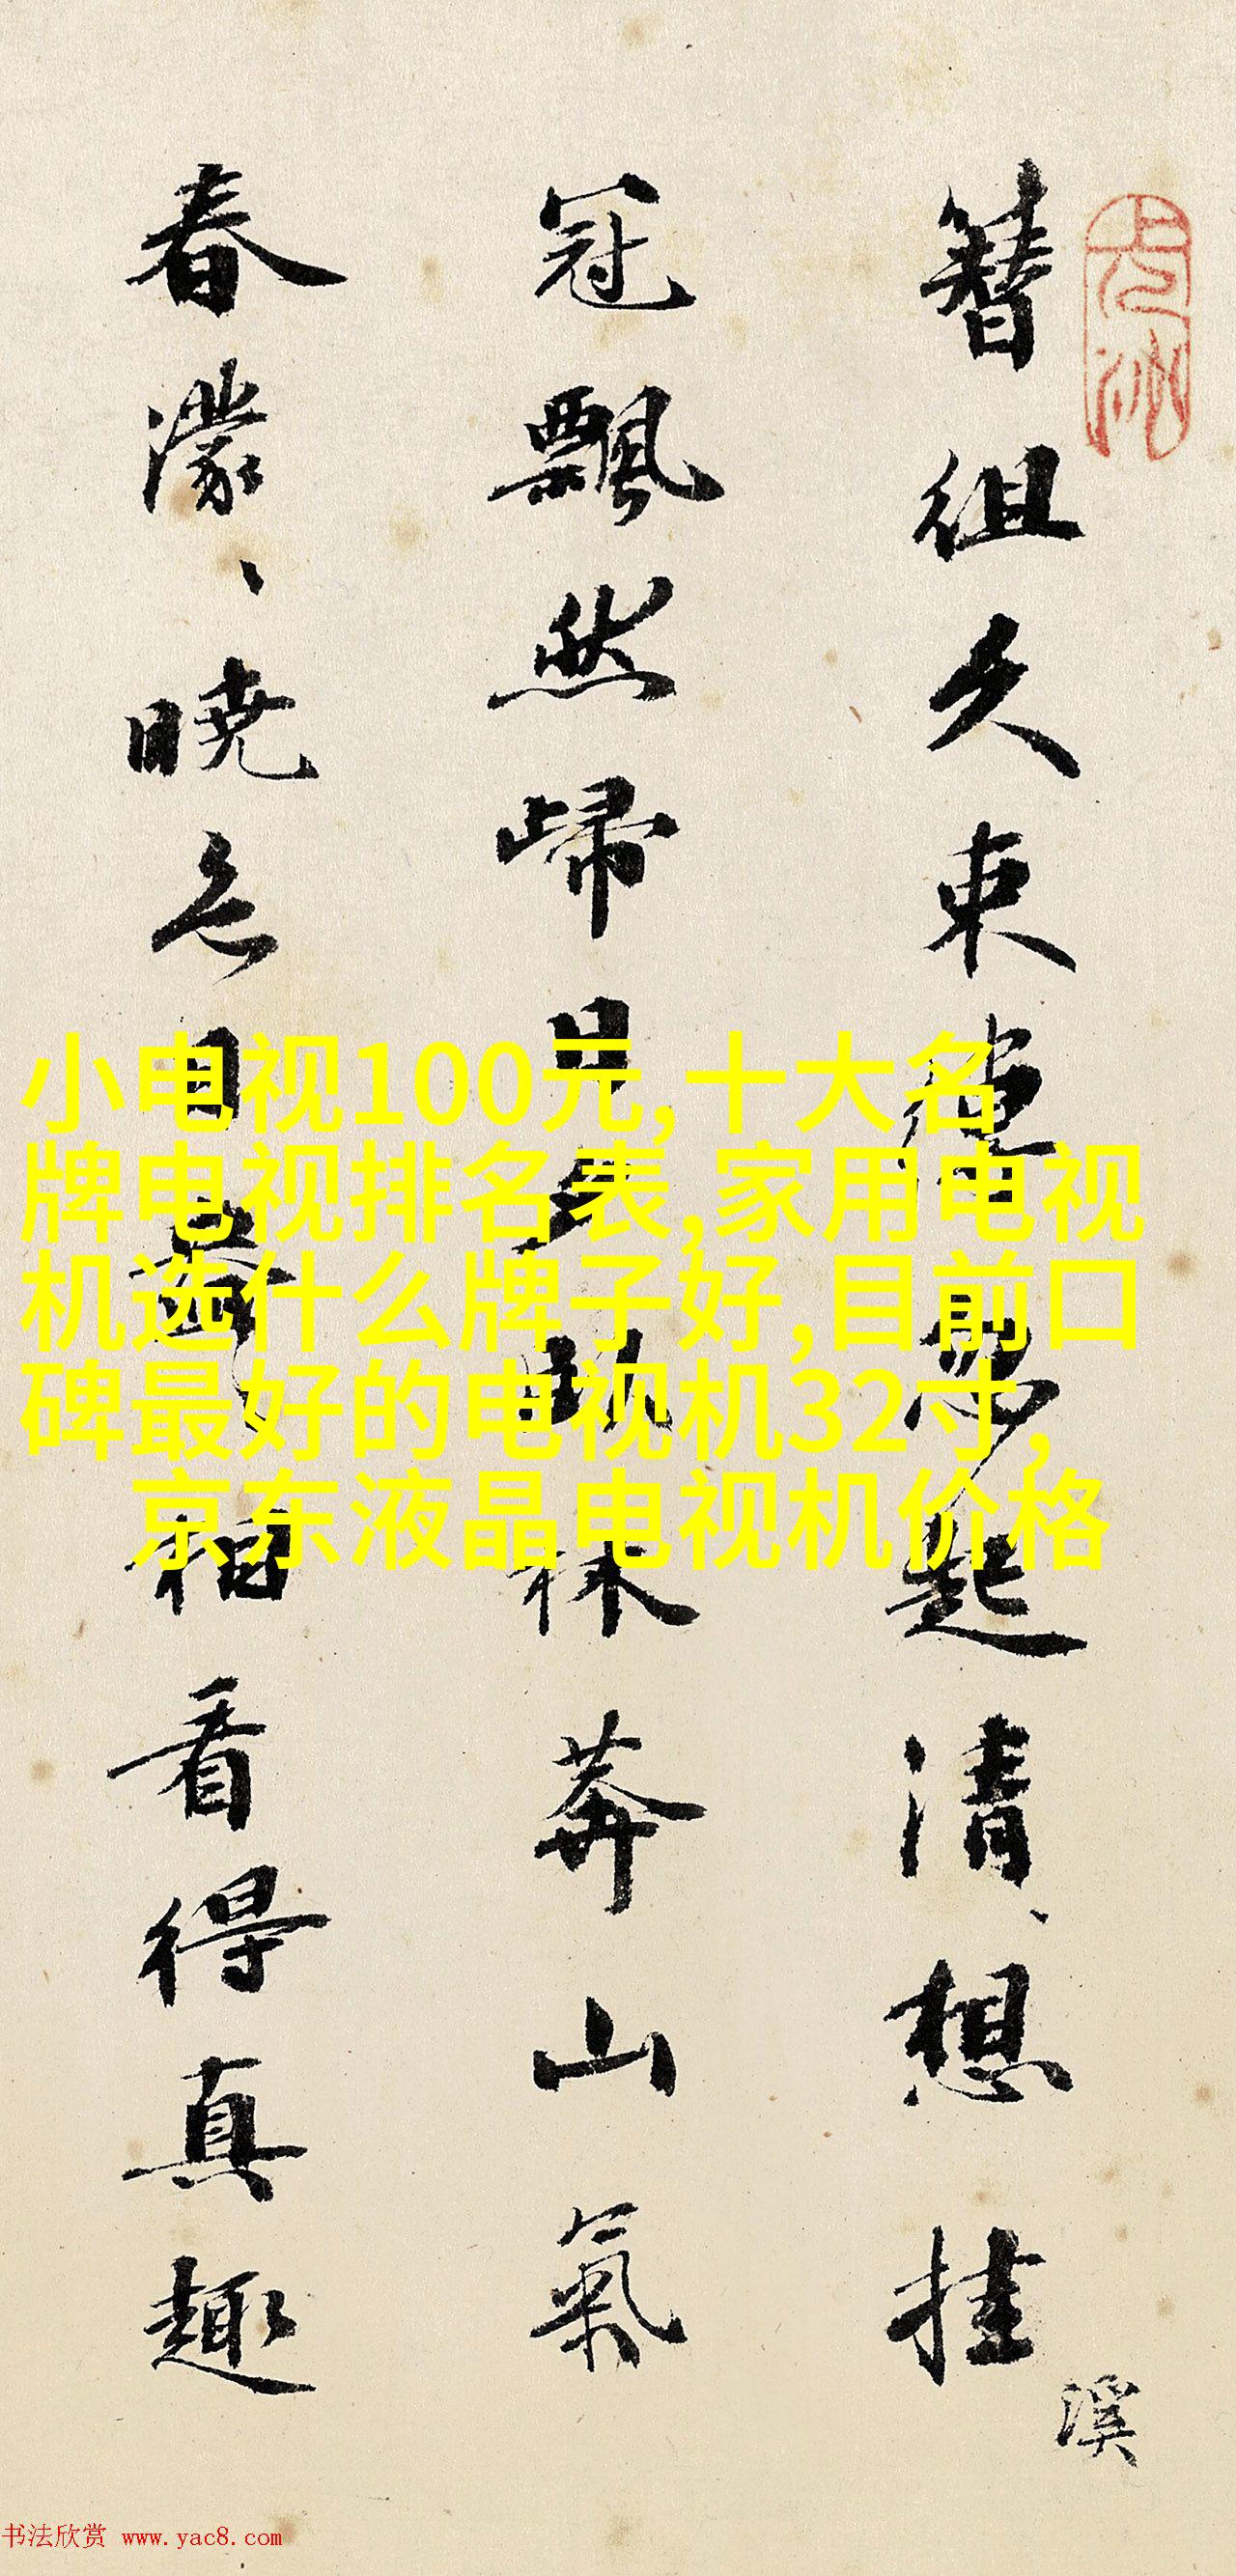 簪组久束缚忽起清、想挂
溪
冠飘然歸日夕頫林莽山氣
春濛、曉色日暮、相看得真趣
小电视100元,十大名
牌电视排名表,家用电视
机选什么牌子好,目前口
碑最好的电视机32寸,
京东液晶电视机价格
书法欣赏 www.yac8.com